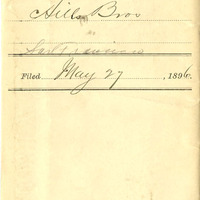 Hills Bros
vs
Filed May 27, 1896.